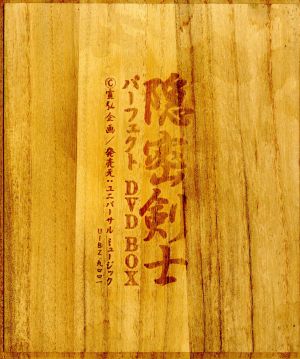 隠密剣士
パーフェクト DVD BOX
©宣弘企画/発売元:ユニバーサル ミュージック